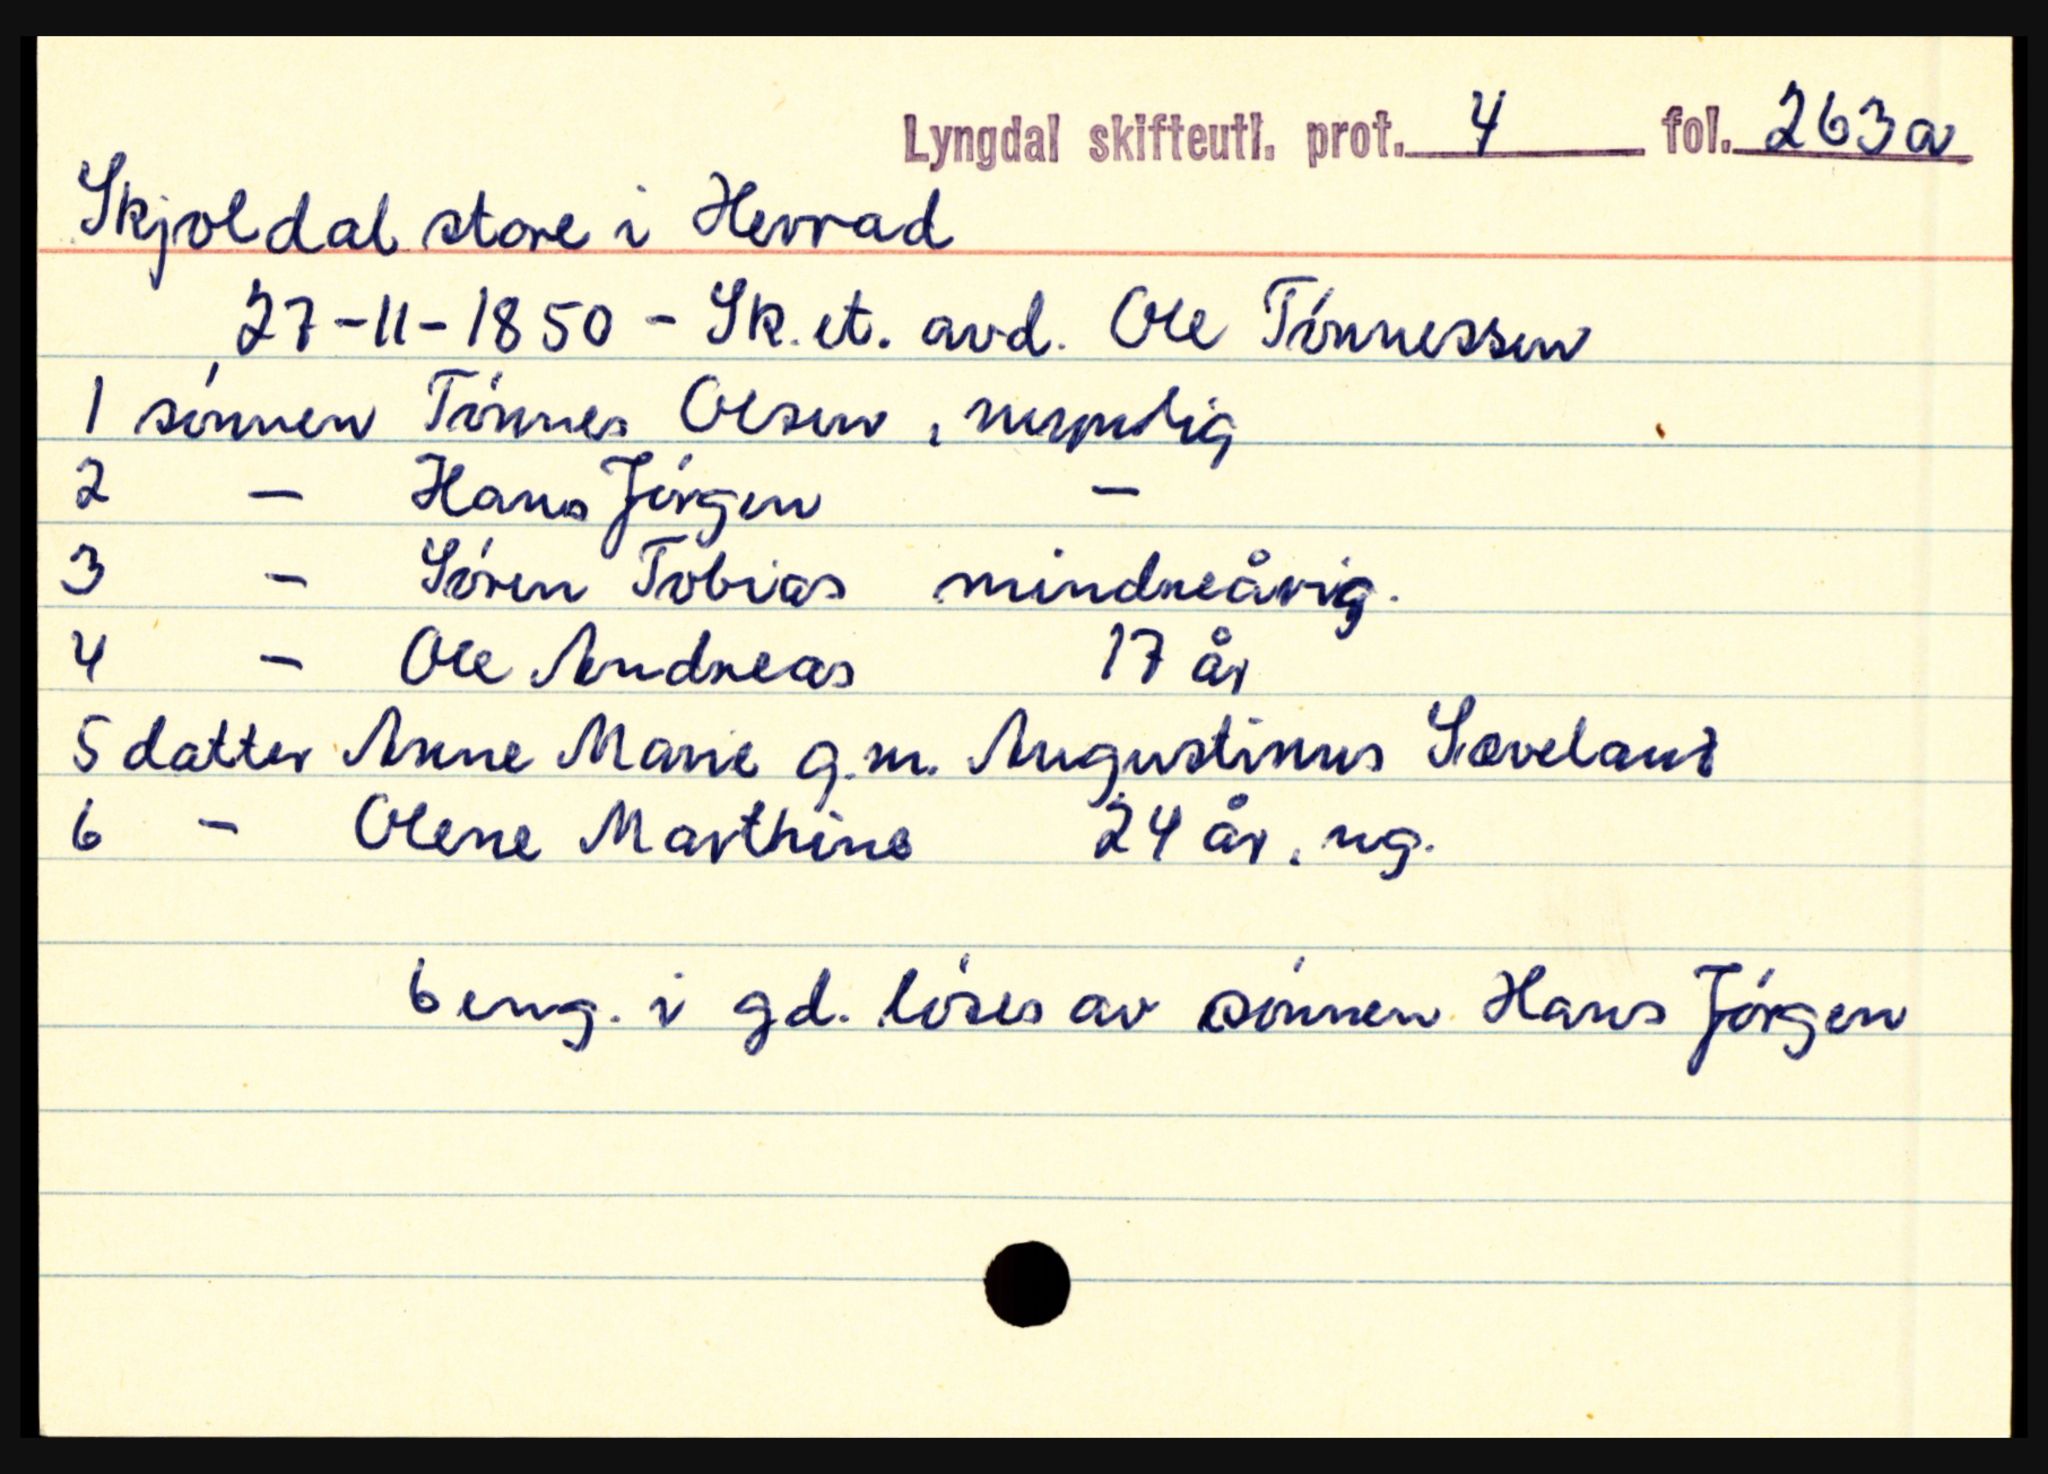 Lyngdal skifteutl. prot. 4 fol. 263a
Skjoldal store i Herrad
27-11-1850 - Sk. et. avd. Ole Tónnessen
1 sónnen Tónnes Olsen, myndig
2 - Hans Jórgen -
3 - Sóren Tobias mindreårig.
4 - Ole Andreas 17 år
5 datter Anne Marie g.m. Augustinus Sæveland
6 - Olene Marthine 24 år, ug.
6 eng. i gd. lóses av sónnen Hans Jórgen